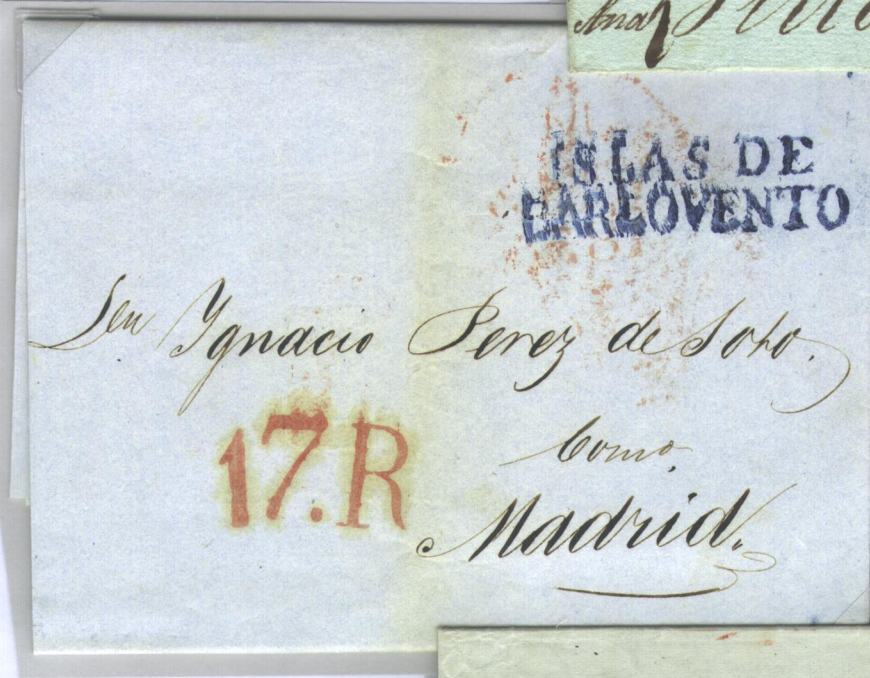 ISLAS DE
BARLOVENTO
Ygnacio Perez de Soto.
17.R
Madrid.